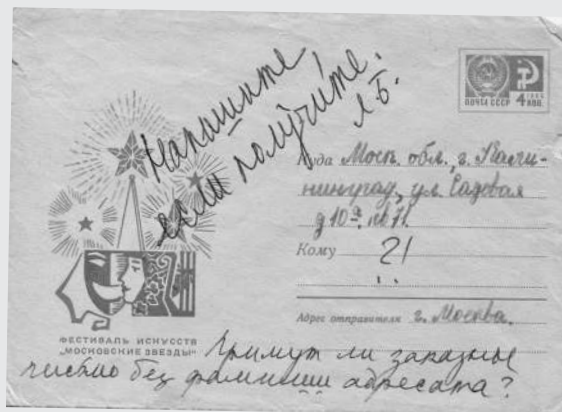 Напишите
если получите.
Л.Б.
ПОЧТА СССР
1966
4 КОП.
Куда Моск. обл., г. Кали-
нинград, ул. Садовая
д 10
Кому 21
Адрес отправителя г. Москва.
ФЕСТИВАЛЬ ИСКУССТВ
„МОСКОВСКИЕ ЗВЕЗДЫ“
Примут ли заказное
письмо без фамилии адресата?